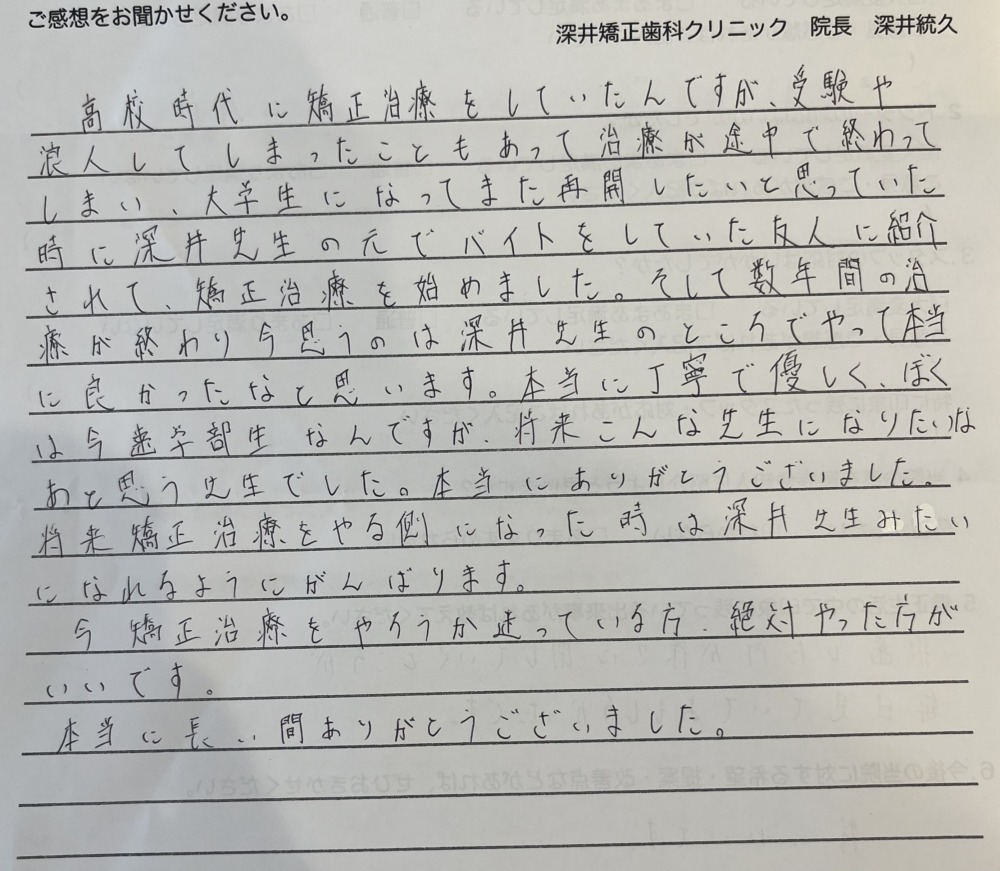 ご感想をお聞かせください。
深井矯正歯科クリニック 院長 深井統久
高校時代に矯正治療をしていたんですが、受験や
浪人してしまったこともあって治療が途中で終わって
しまい、大学生になってまた再開したいと思っていた
時に深井先生の元でバイトをしていた友人に紹介
されて、矯正治療を始めました。そして数年間の治
療が終わり今思うのは深井先生のところでやって本当
に良かったなと思います。本当に丁寧で優しく、ぼく
は今歯学部生なんですが、将来こんな先生になりたいな
あと思う先生でした。本当にありがとうございました。
将来矯正治療をやる側になった時は深井先生みたい
になれるようにがんばります。
今矯正治療をやろうか迷っている方、絶対やった方が
いいです。
本当に長い間ありがとうございました。